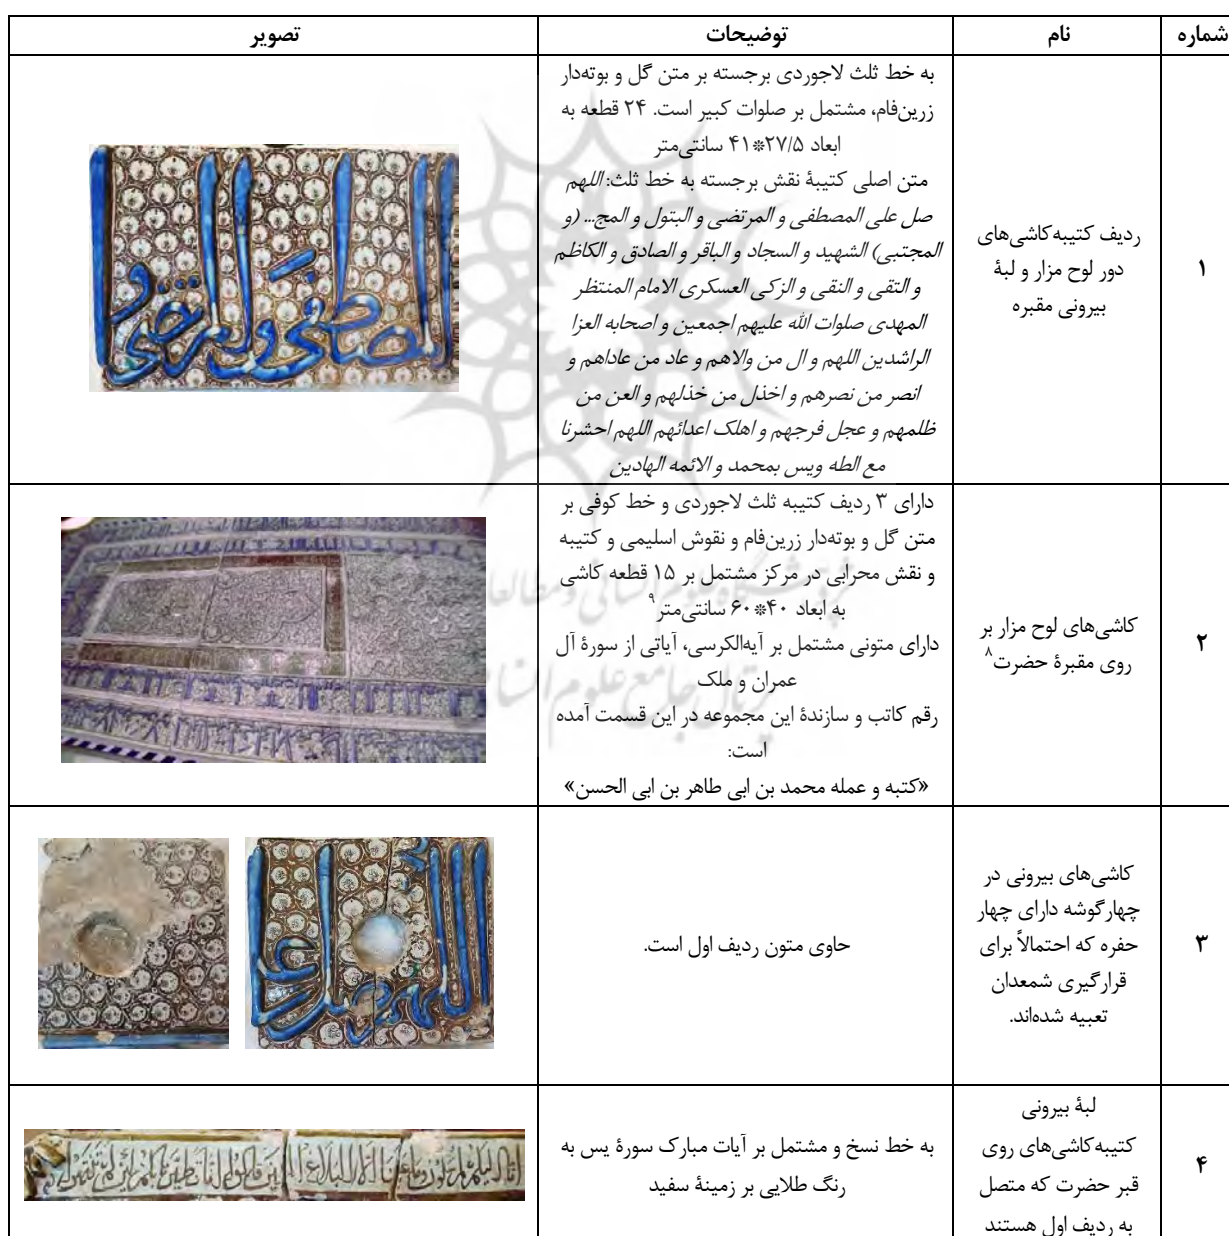 شماره	نام	توضیحات	تصویر
۱
ردیف کتیبه‌کاشی‌های
دور لوح مزار و لبهٔ
بیرونی مقبره
به خط ثلث لاجوردی برجسته بر متن گل و بوته‌دار
زرین‌فام، مشتمل بر صلوات کبیر است. ۲۴ قطعه به
ابعاد ۲۷/۵*۴۱ سانتی‌متر
متن اصلی کتیبهٔ نقش برجسته به خط ثلث: اللهم
صل علی المصطفی و المرتضی و البتول و المج... (و
المجتبی) الشهید و السجاد و الباقر و الصادق و الکاظم
و التقی و النقی و الزکی العسکری الامام المنتظر
المهدی صلوات الله علیهم اجمعین و اصحابه العزا
الراشدین اللهم و ال من والاهم و عاد من عاداهم و
انصر من نصرهم و اخذل من خذلهم و العن من
ظلمهم و عجل فرجهم و اهلک اعدائهم اللهم احشرنا
مع الطه ویس بمحمد و الائمه الهادین
المصطفی و المرتضی و
۲
کاشی‌های لوح مزار بر
روی مقبرهٔ حضرت۸
دارای ۳ ردیف کتیبه ثلث لاجوردی و خط کوفی بر
متن گل و بوته‌دار زرین‌فام و نقوش اسلیمی و کتیبه
و نقش محرابی در مرکز مشتمل بر ۱۵ قطعه کاشی
به ابعاد ۴۰*۶۰ سانتی‌متر۹
دارای متونی مشتمل بر آیه‌الکرسی، آیاتی از سورهٔ آل
عمران و ملک
رقم کاتب و سازندهٔ این مجموعه در این قسمت آمده
است:
«کتبه و عمله محمد بن ابی طاهر بن ابی الحسن»
۳
کاشی‌های بیرونی در
چهارگوشه دارای چهار
حفره که احتمالاً برای
قرارگیری شمعدان
تعبیه شده‌اند.
حاوی متون ردیف اول است.
اللهم صل علی
۴
لبهٔ بیرونی
کتیبه‌کاشی‌های روی
قبر حضرت که متصل
به ردیف اول هستند
به خط نسخ و مشتمل بر آیات مبارک سورهٔ یس به
رنگ طلایی بر زمینهٔ سفید
پژوهشگاه علوم انسانی و مطالعا
پرتال جامع علوم انسا